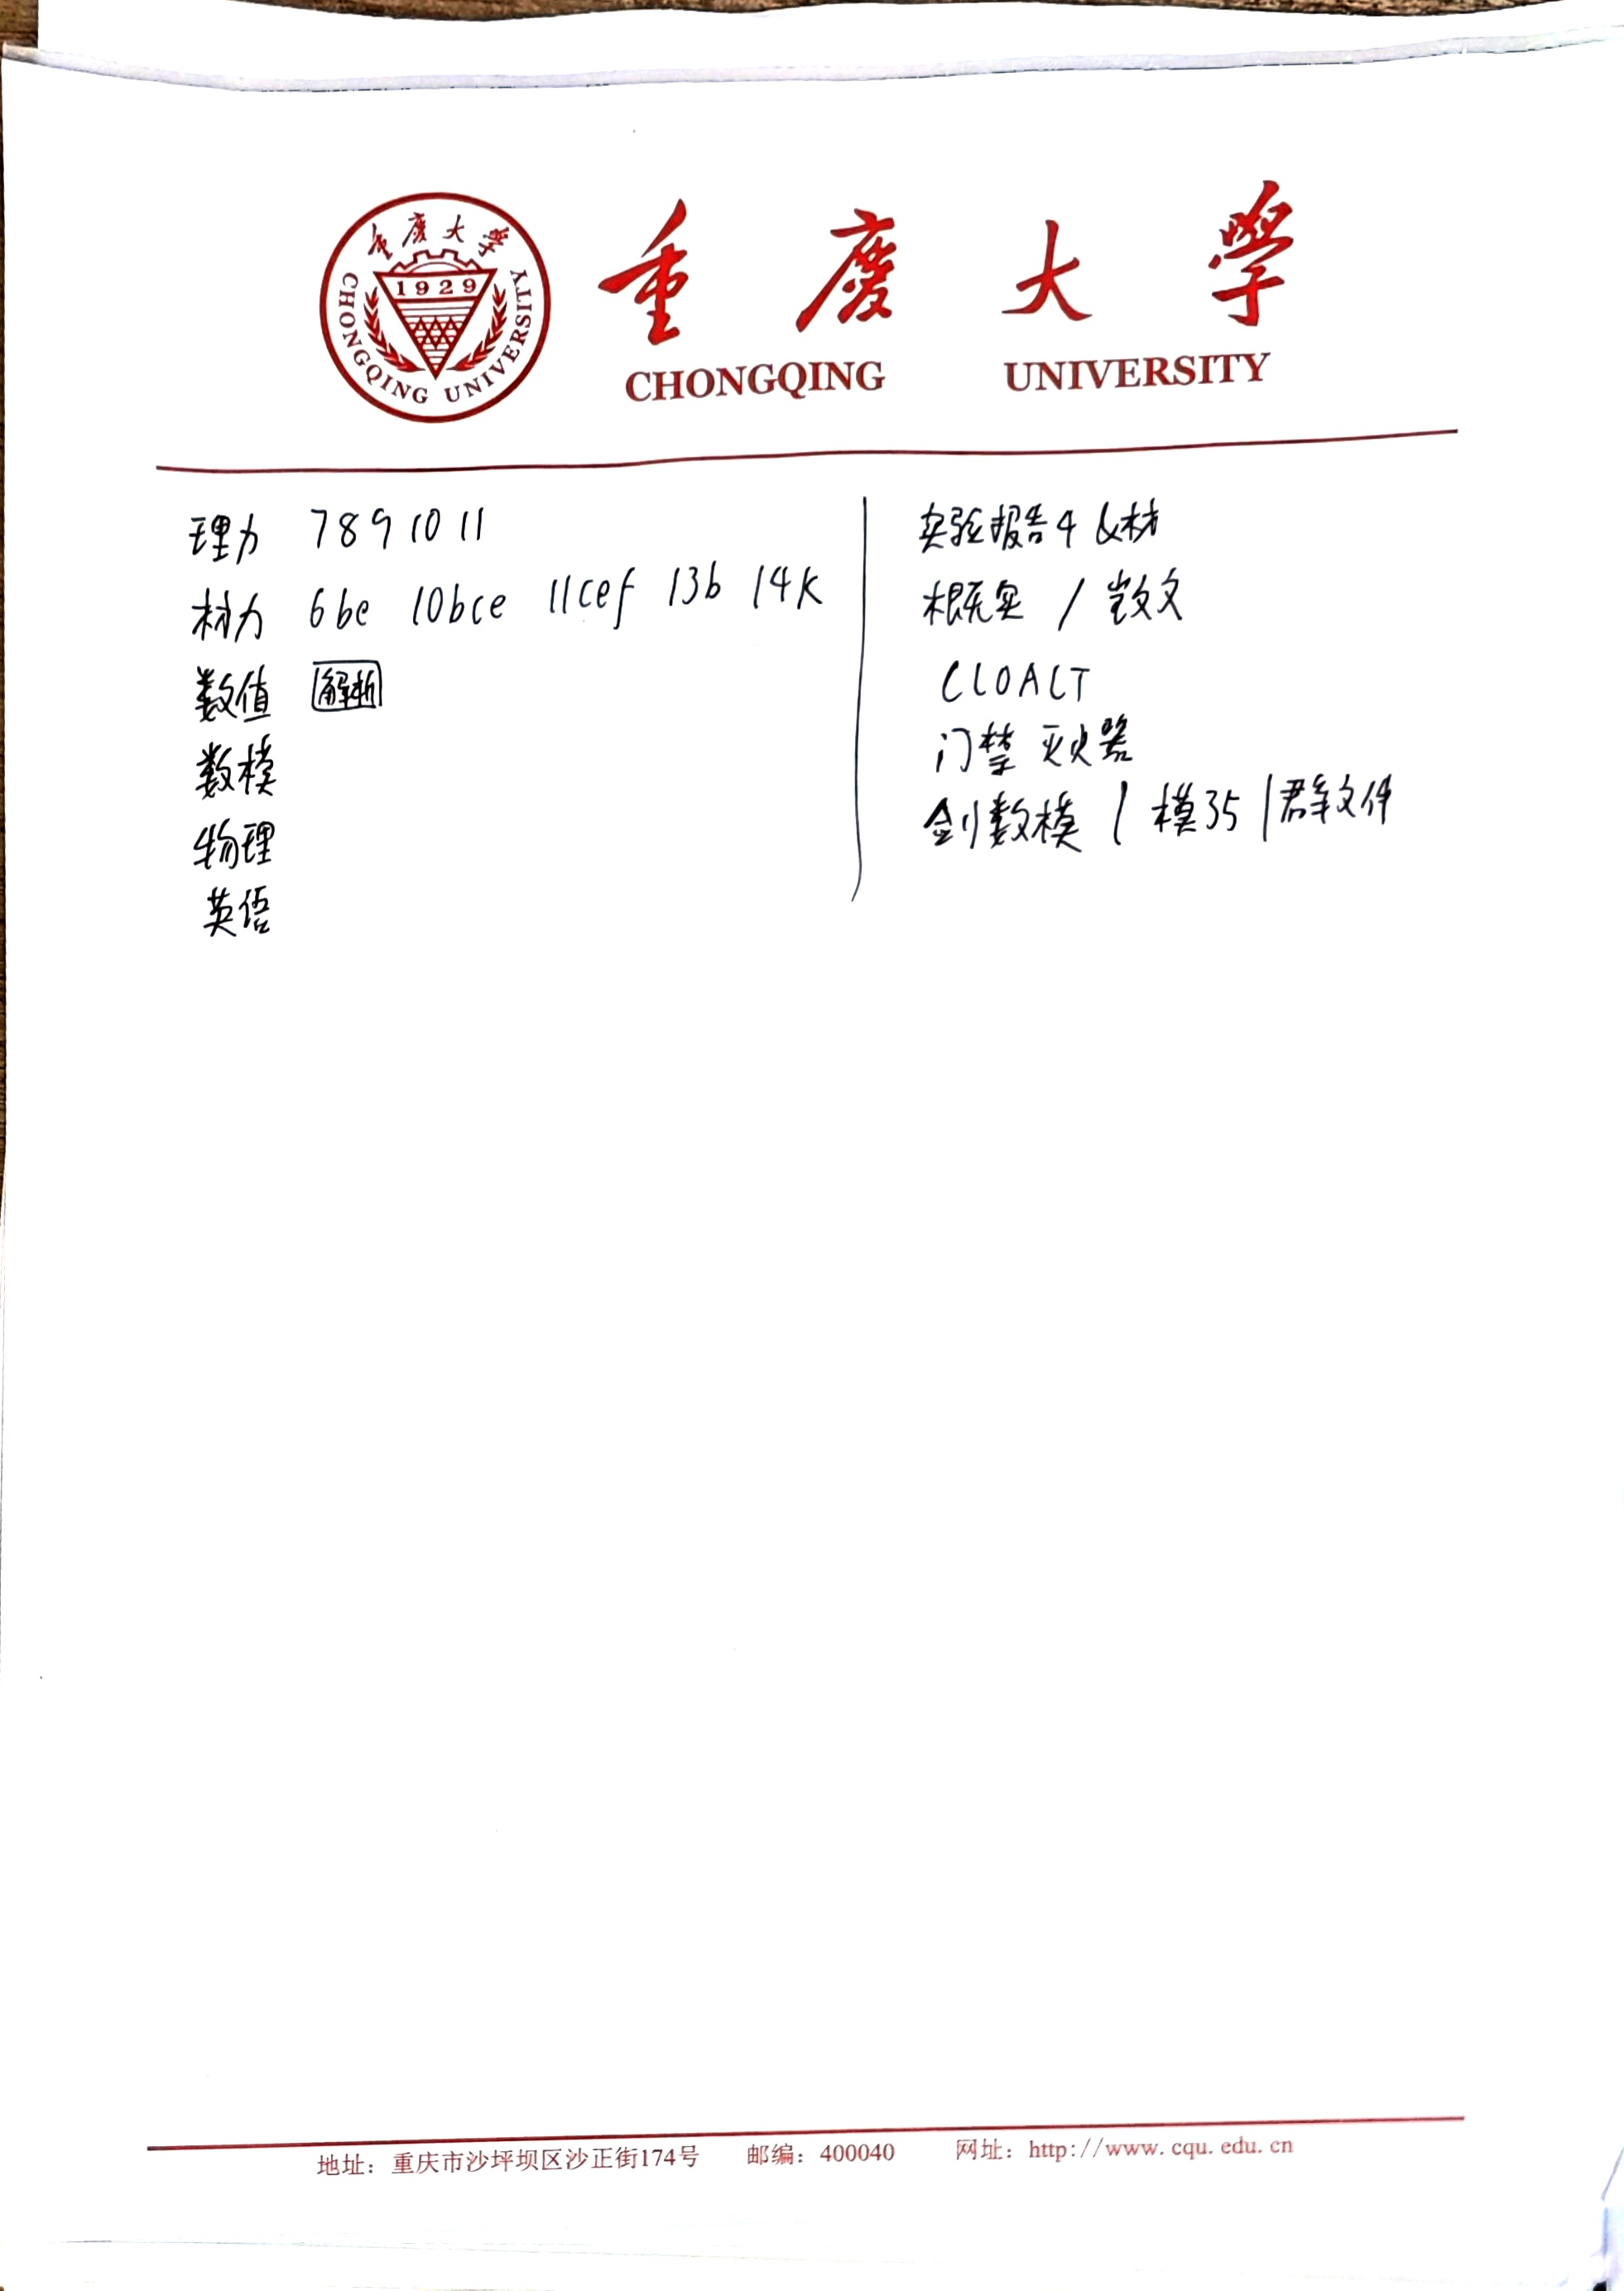 重庆大学
CHONGQING UNIVERSITY
1929
重慶大學
CHONGQING UNIVERSITY
理力 7 8 9 10 11
材力 6be 10bce 11cef 13b 14k
数值 解析
数模
物理
英语
实验报告4 &材
概实 /
CLOACT
门禁 灭火器
数模 / 模35 / 群文件
地址：重庆市沙坪坝区沙正街174号 邮编：400040 网址：http://www.cqu.edu.cn